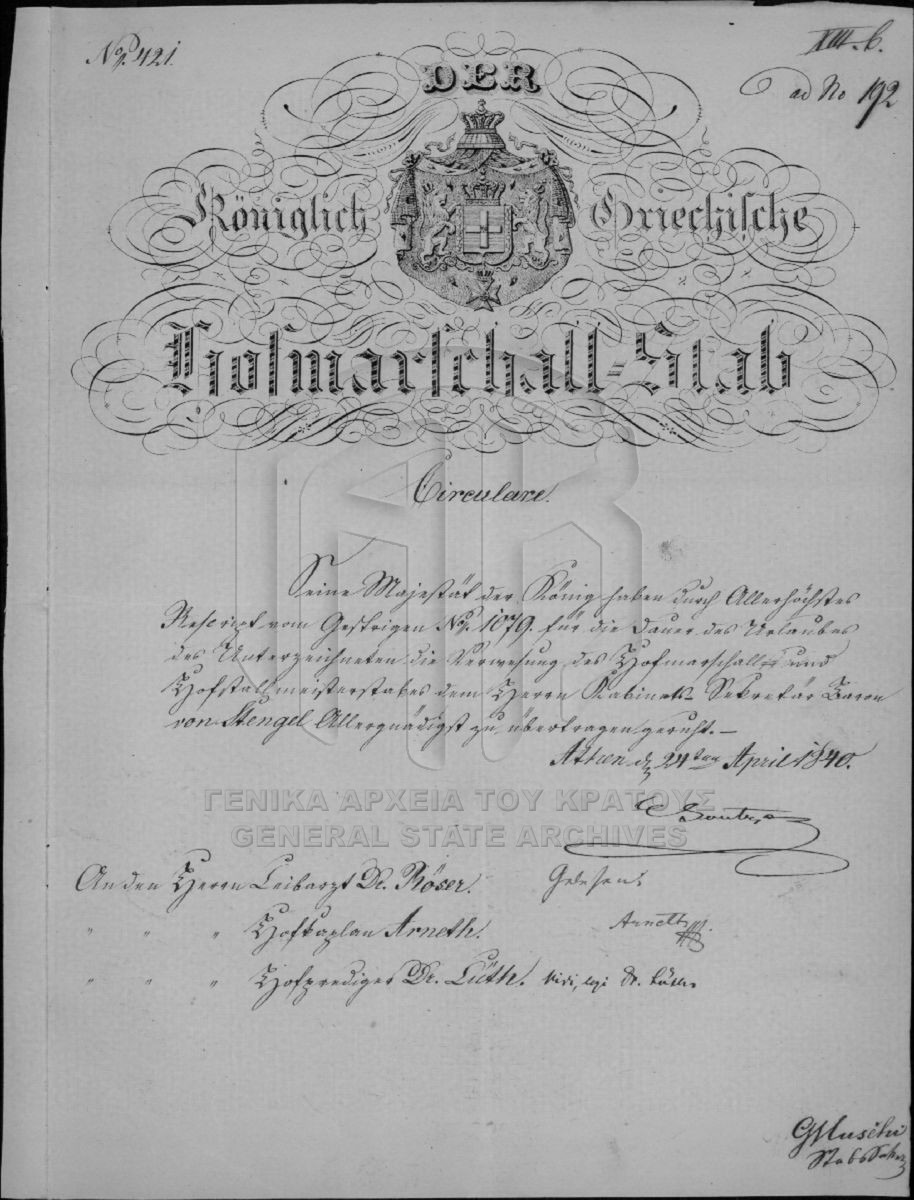 No. 421.
XIII. b.
ad No 192
DER
Königlich Griechische
Hofmarschall=Stab
Circulare.
Seine Majestät der König haben durch Allerhöchstes
Rescript vom Gestrigen No. 1079. für die Dauer des Urlaubes
des Unterzeichneten die Verwesung des Hofmarschall und
Hofstallmeisterstabes dem Herrn Kabinets Sekretär Baron
von Stengel Allergnädigst zu übertragen geruht.–
Athen d. 24ten April 1840.
ΓΕΝΙΚΑ ΑΡΧΕΙΑ ΤΟΥ ΚΡΑΤΟΥΣ
GENERAL STATE ARCHIVES
An den Herrn Leibarzt Dr. Röser. Gelesen.
" " " Hofkaplan Arneth. Arneth
" " " Hofprediger Dr. Lüth. vidi, legi Dr. Lüth.